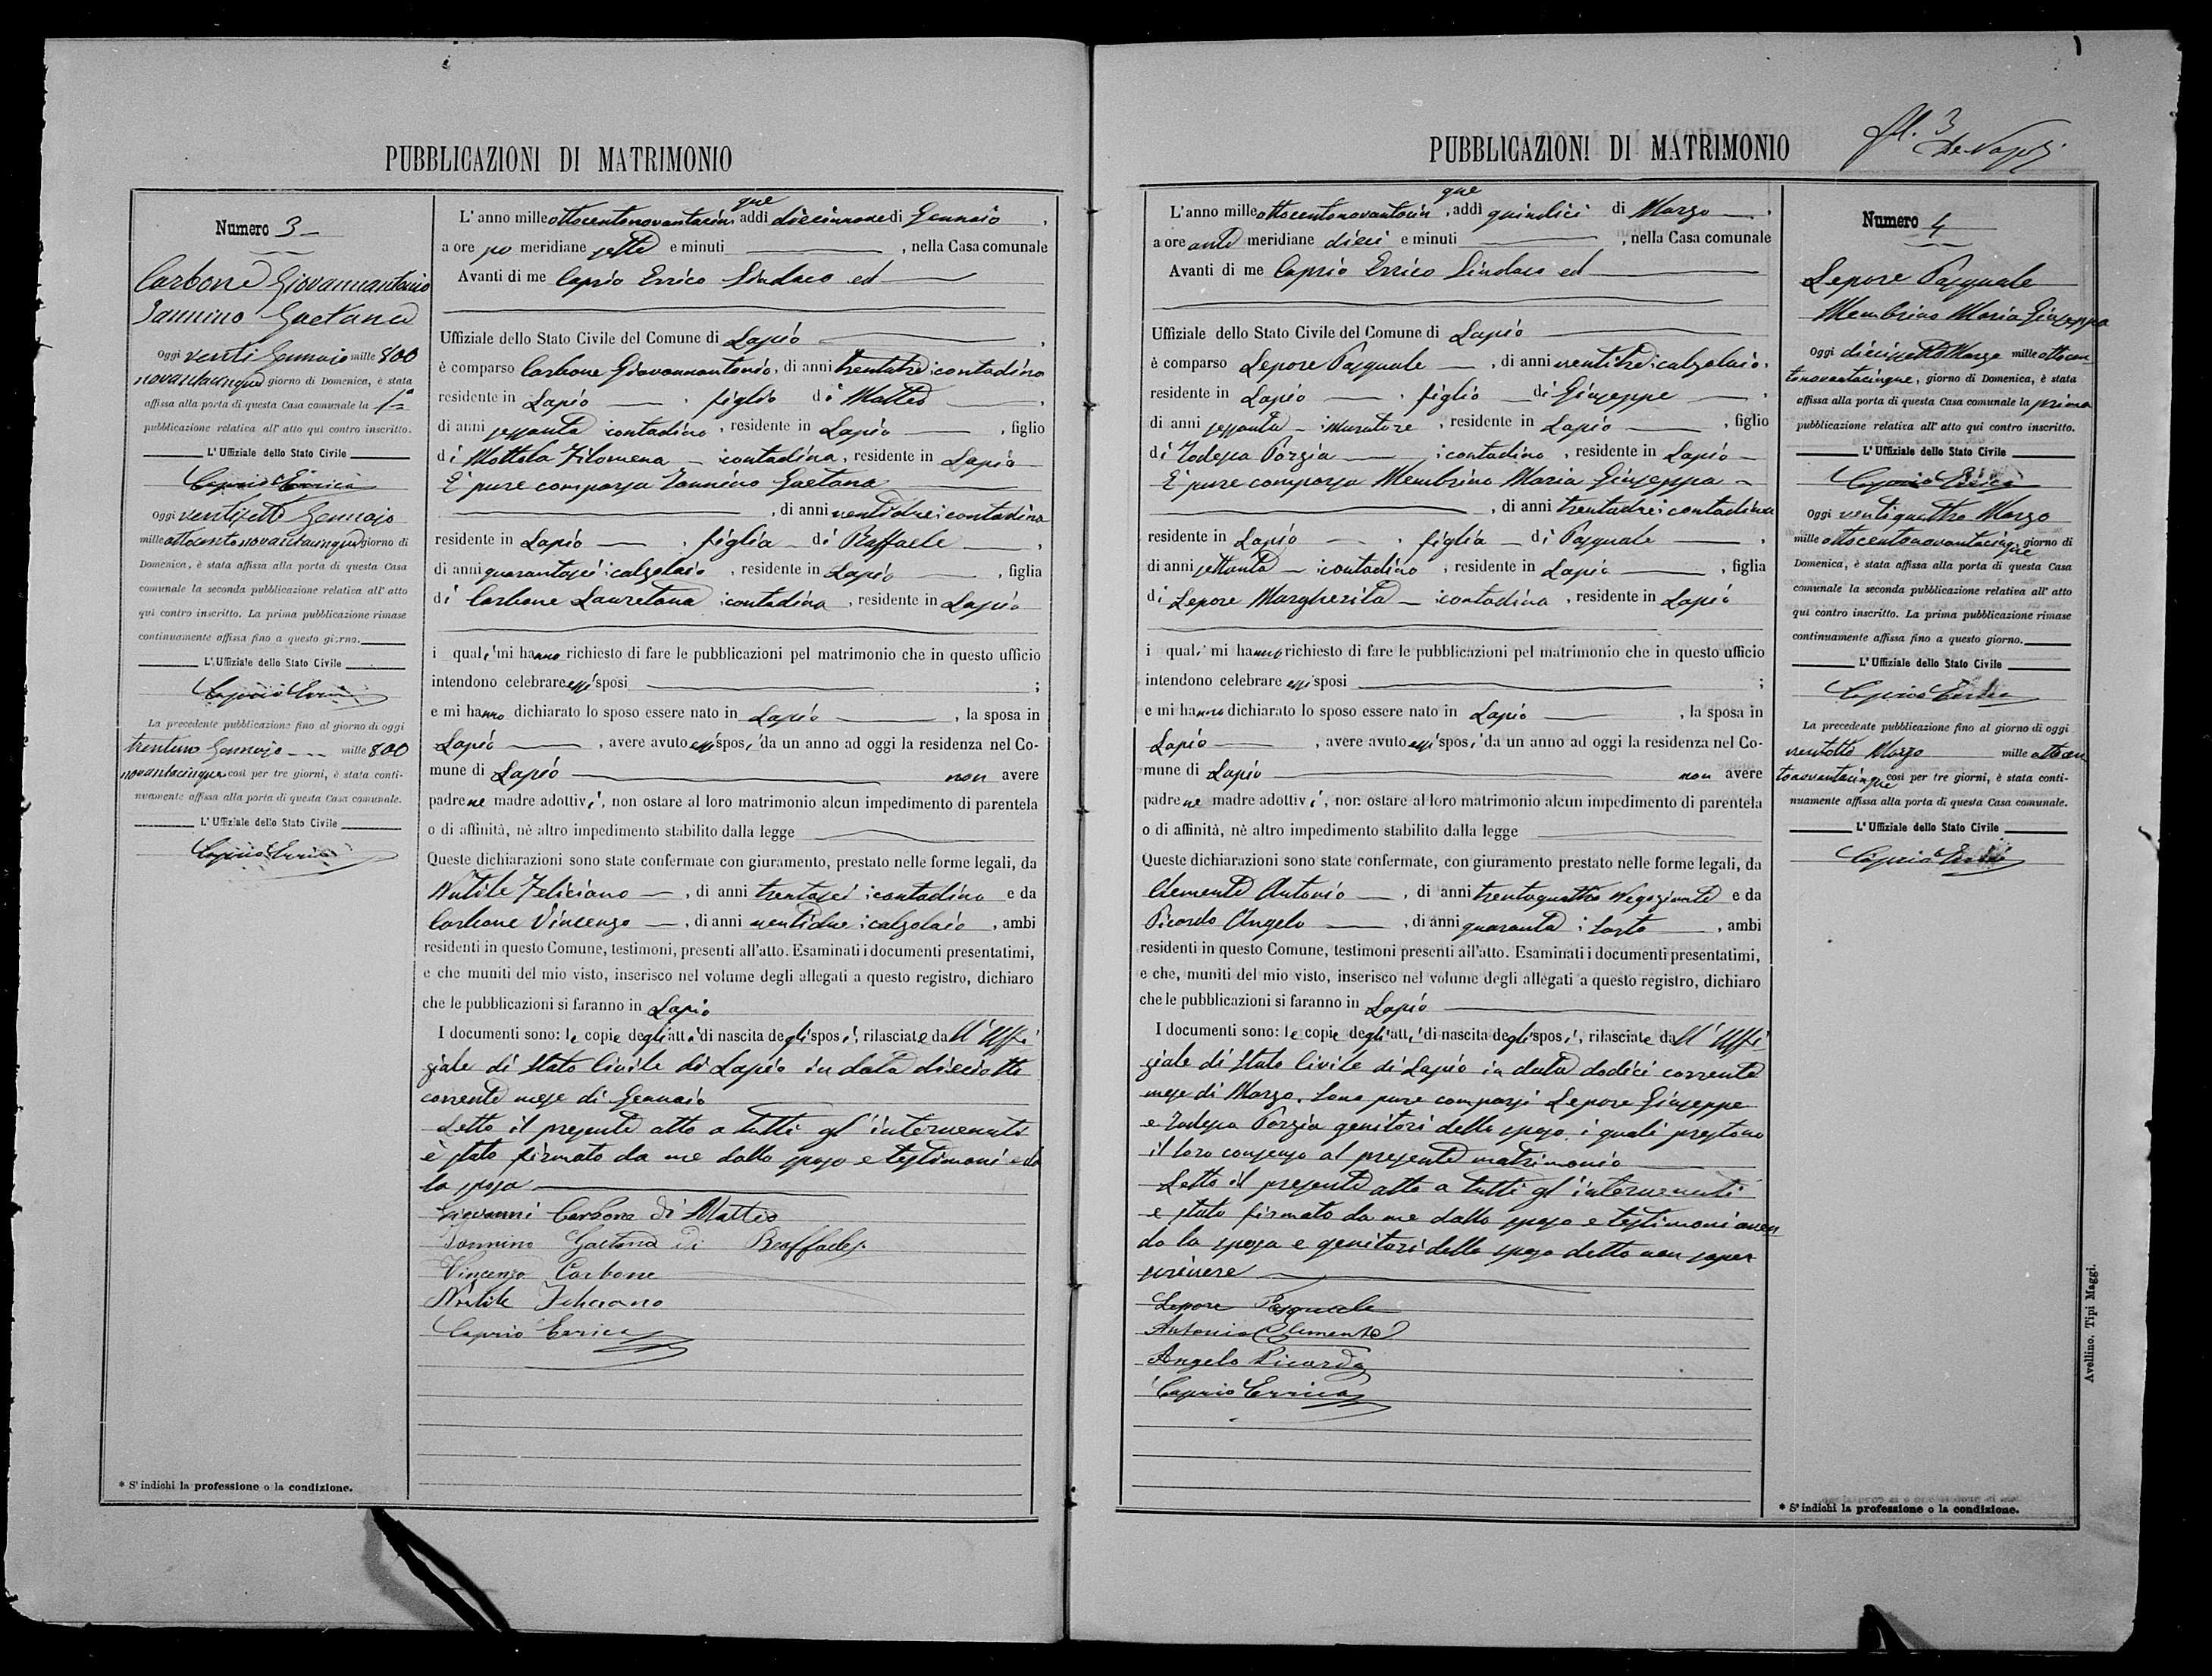 PUBBLICAZIONI DI MATRIMONIO
Numero 3
Carbone Giovannantonio
Iannino Gaetana
Oggi venti Gennajo mille 800
novantacinque giorno di Domenica, è stata
affissa alla porta di questa Casa comunale la 1a
pubblicazione relativa all' atto qui contro inscritto.
L' Uffiziale dello Stato Civile
Caprio Errico
Oggi ventisette Gennajo
mille ottocentonovantacinque giorno di
Domenica, è stata affissa alla porta di questa Casa
comunale la seconda pubblicazione relativa all' atto
qui contro inscritto. La prima pubblicazione rimase
continuamente affissa fino a questo giorno.
L' Uffiziale dello Stato Civile
Caprio Errico
La precedente pubblicazione fino al giorno di oggi
trentuno Gennajo mille 800
novantacinque così per tre giorni, è stata conti-
nuamente affissa alla porta di questa Casa comunale.
L' Uffiziale dello Stato Civile
Caprio Errico
* S' indichi la professione o la condizione.
L' anno mille ottocentonovantacinque addì diecinnove di Gennaio,
a ore po meridiane sette e minuti , nella Casa comunale
Avanti di me Caprio Errico Sindaco ed
Uffiziale dello Stato Civile del Comune di Lapio ,
è comparso Carbone Giovannantonio, di anni trentatre contadino
residente in Lapio , figlio di Matteo ,
di anni sessanta contadino, residente in Lapio , figlio
di Mottola Filomena contadina, residente in Lapio
È pure comparsa Iannino Gaetana
, di anni contadina
residente in Lapio , figlia di Raffaele ,
di anni quarantasei calzolaio, residente in Lapio , figlia
di Carbone Lauretana contadina, residente in Lapio
i quali mi hanno richiesto di fare le pubblicazioni pel matrimonio che in questo ufficio
intendono celebrare essi sposi ;
e mi hanno dichiarato lo sposo essere nato in Lapio , la sposa in
Lapio , avere avuto essi sposi da un anno ad oggi la residenza nel Co-
mune di Lapio non avere
padre ne madre adottivi, non ostare al loro matrimonio alcun impedimento di parentela
o di affinità, nè altro impedimento stabilito dalla legge
Queste dichiarazioni sono state confermate con giuramento, prestato nelle forme legali, da
Nutile Feliciano , di anni trentasei contadino e da
Carbone Vincenzo , di anni ventidue calzolaio , ambi
residenti in questo Comune, testimoni, presenti all'atto. Esaminati i documenti presentatimi,
e che muniti del mio visto, inserisco nel volume degli allegati a questo registro, dichiaro
che le pubblicazioni si faranno in Lapio
I documenti sono: le copie degli atti di nascita degli sposi, rilasciate dall' Uffi
ziale di Stato Civile di Lapio in data dieciotto
corrente mese di Gennaio
Letto il presente atto a tutti gl' intervenuti
è stato firmato da me dallo sposo e testimoni e da
la sposa
Giovanni Carbone di Matteo
Iannino Gaetana di Raffaele
Vincenzo Carbone
Nutile Feliciano
Caprio Errico
fol. 3
De Napoli
PUBBLICAZIONI DI MATRIMONIO
L' anno mille ottocentonovantacinque, addì quindici di Marzo ,
a ore ante meridiane dieci e minuti , nella Casa comunale
Avanti di me Caprio Errico Sindaco ed
Uffiziale dello Stato Civile del Comune di Lapio
è comparso Lepore Pasquale , di anni ventitre calzolaio,
residente in Lapio , figlio di Giuseppe ,
di anni sessanta muratore, residente in Lapio , figlio
di Iodesa Porzia contadina, residente in Lapio
È pure comparsa Membrino Maria Giuseppa
, di anni contadina
residente in Lapio , figlia di Pasquale ,
di anni settanta contadino, residente in Lapio , figlia
di Lepore Margherita contadina, residente in Lapio
i quali mi hanno richiesto di fare le pubblicazioni pel matrimonio che in questo ufficio
intendono celebrare essi sposi ;
e mi hanno dichiarato lo sposo essere nato in Lapio , la sposa in
Lapio , avere avuto essi sposi da un anno ad oggi la residenza nel Co-
mune di Lapio non avere
padre ne madre adottivi, non ostare al loro matrimonio alcun impedimento di parentela
o di affinità, nè altro impedimento stabilito dalla legge
Queste dichiarazioni sono state confermate, con giuramento prestato nelle forme legali, da
Clemente Antonio , di anni trentaquattro Negoziante e da
Picardo Angelo , di anni quaranta Sarto , ambi
residenti in questo Comune, testimoni presenti all'atto. Esaminati i documenti presentatimi,
e che, muniti del mio visto, inserisco nel volume degli allegati a questo registro, dichiaro
che le pubblicazioni si faranno in Lapio
I documenti sono: le copie degli atti di nascita degli sposi, rilasciate dall' Uffi-
ziale di Stato Civile di Lapio in data dodici corrente
mese di Marzo. Sono pure comparsi Lepore Giuseppe
e Iodesa Porzia genitori dello sposo i quali prestano
il loro consenso al presente matrimonio
Letto il presente atto a tutti gl' intervenuti
è stato firmato da me dallo sposo e testimoni aven
do la sposa e genitori dello sposo detto non saper
scrivere
Lepore Pasquale
Antonio Clemente
Angelo Picardo
Caprio Errico
Numero 4
Lepore Pasquale
Membrino Maria Giuseppa
Oggi diciasette Marzo mille ottocen
tonovantacinque, giorno di Domenica, è stata
affissa alla porta di questa Casa comunale la prima
pubblicazione relativa all' atto qui contro inscritto.
L' Uffiziale dello Stato Civile
Caprio Errico
Oggi ventiquattro Marzo
mille ottocentonovantacinque, giorno di
Domenica, è stata affissa alla porta di questa Casa
comunale la seconda pubblicazione relativa all' atto
qui contro inscritto. La prima pubblicazione rimase
continuamente affissa fino a questo giorno.
L' Uffiziale dello Stato Civile
Caprio Errico
La precedente pubblicazione fino al giorno di oggi
ventotto Marzo mille ottocen
tonovantacinque così per tre giorni, è stata conti-
nuamente affissa alla porta di questa Casa comunale.
L' Uffiziale dello Stato Civile
Caprio Errico
* S' indichi la professione o la condizione.
Avellino. Tipi Maggi.